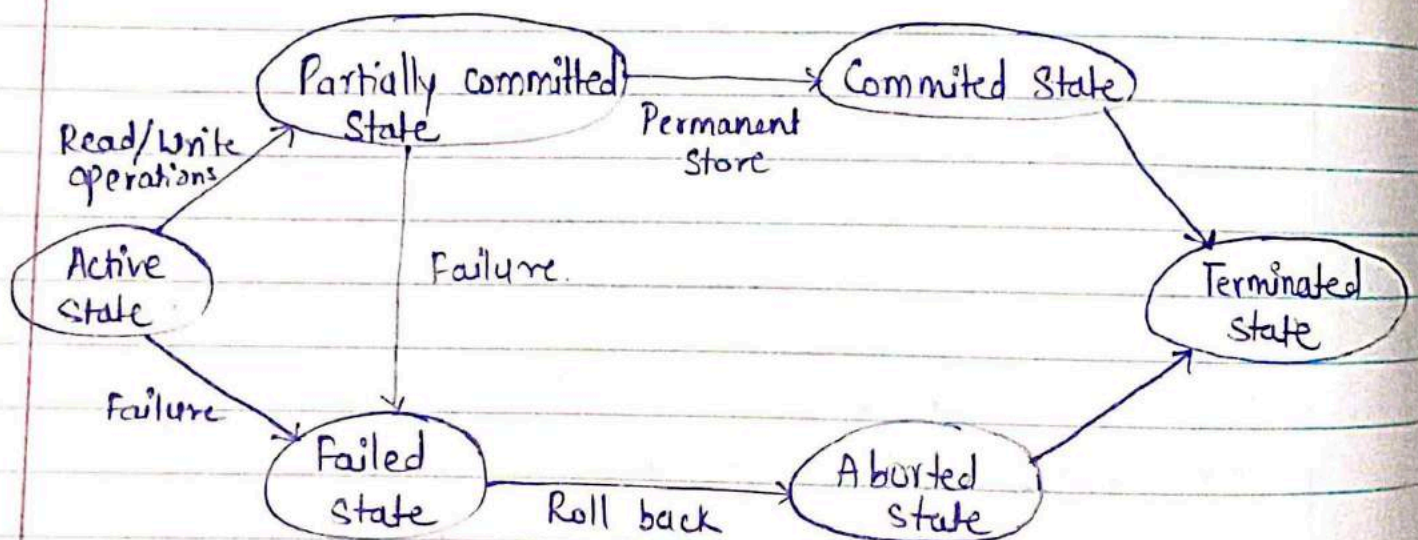 Partially committed
State
Commited State
Permanent
Store
Read/Write
operations
Active
State
Failure.
Terminated
state
Failure
Failed
state
Roll back
Aborted
state